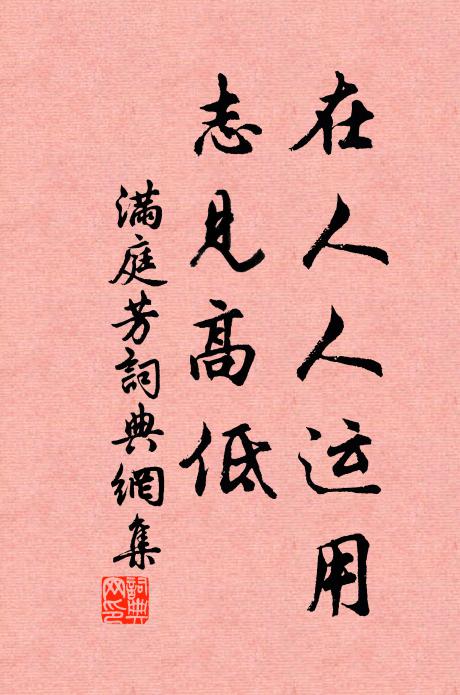 在人人运用
志见高低
满庭芳詞典網集
詞典网印